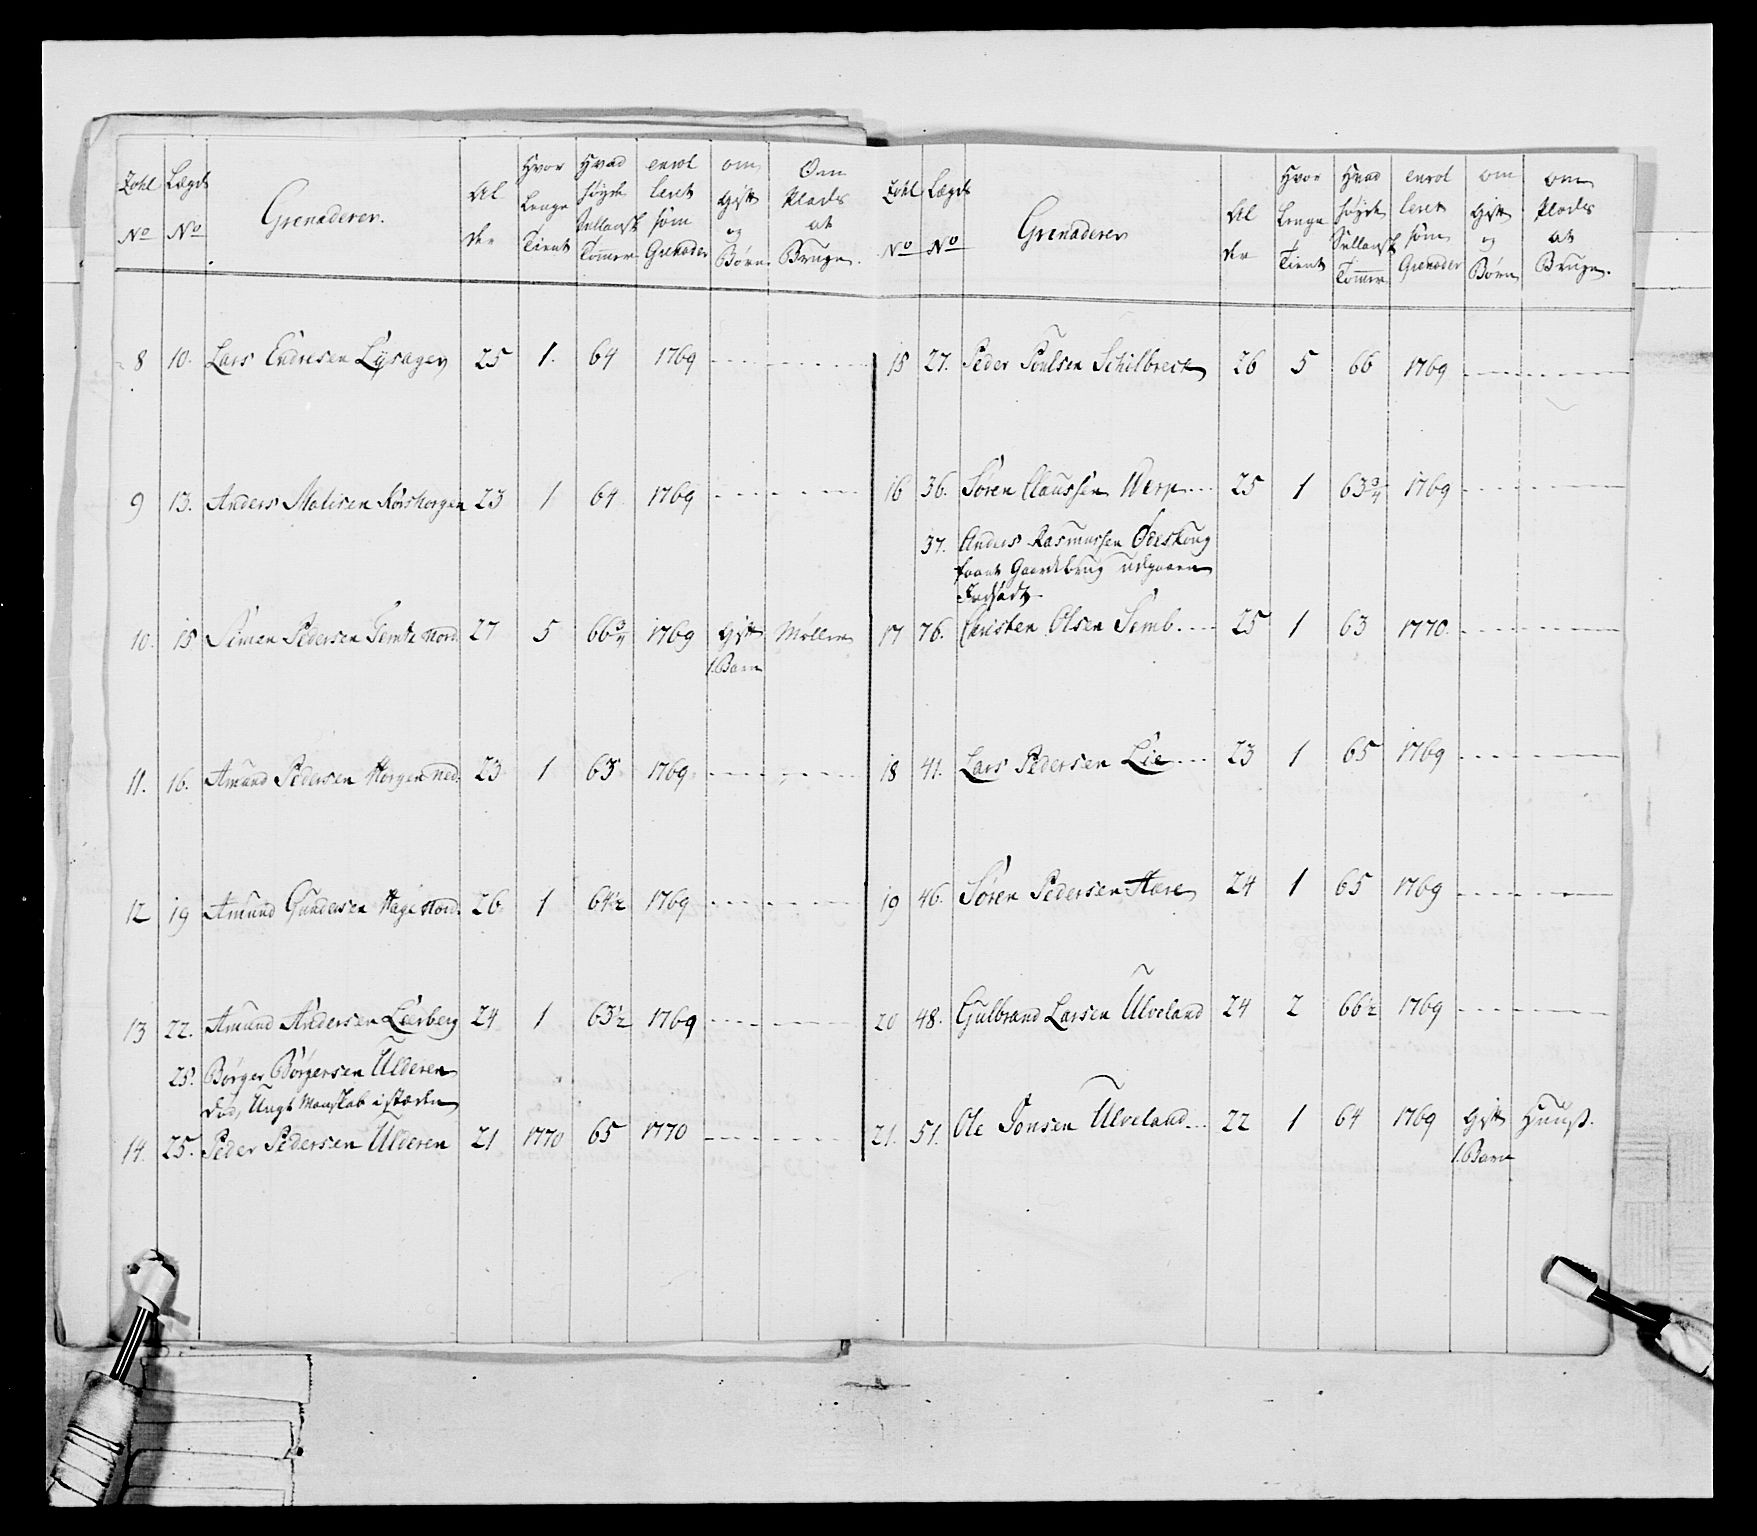 Zohl No | Lægds No | Grenaderer. | Al der | Hvor Lenge Tient | Hvad Høyde Sellansk Tommer | enrol leret som Grenader | om Gift og Børn | Om Plads at Bruge.
8 | 10. | Lars Endresen Lysager | 25 | 1. | 64 | 1769
9 | 13. | Anders Madisen Korshorgen | 23 | 1 | 64 | 1769
10. | 15 | Simen Pedersen Temte Nord. | 27 | 5 | 66¾ | 1769 | Gift | Møller
1. Barn
11. | 16. | Amund Pedersen Horgen ned. | 23 | 1 | 65 | 1769
12 | 19 | Amund Gundersen Hage Nord. | 26 | 1 | 64½ | 1769
13 | 22. | Amund Andersen Lierberg | 24 | 1 | 63½ | 1769
25. | Børger Børgersen Ulderen
død, Ungt Manskab i stæden
14. | 25. | Peder Pedersen Ulderen | 21 | 1770 | 65 | 1770
Zohl No | Lægds No | Grenaderer | Al der | Hvor Lenge Tient | Hvad Høyde Sellansk Tommer | enrol leret som Grenader | om Gift og Børn | om Plads at Bruge.
15 | 27. | Peder Poulsen Schilbreck | 26 | 5 | 66 | 1769
16 | 36. | Søren Claussen Werp | 25 | 1 | 63¾ | 1769
37. | Anders Rasmussen Ødeskoug
faaet Gaardebrug udgaaen
17 | 76. | Christen Olsen Semb. | 25 | 1 | 63 | 1770.
18 | 41. | Lars Pedersen Lie | 23 | 1 | 65 | 1769
19 | 46. | Søren Pedersen Hære | 24 | 1 | 65 | 1769
20 | 48. | Gulbrand Larsen Ulveland | 24 | 2 | 66½ | 1769
21. | 51. | Ole Jonsen Ulveland | 22 | 1 | 64 | 1769 | Gift | Huuss.
1. Barn